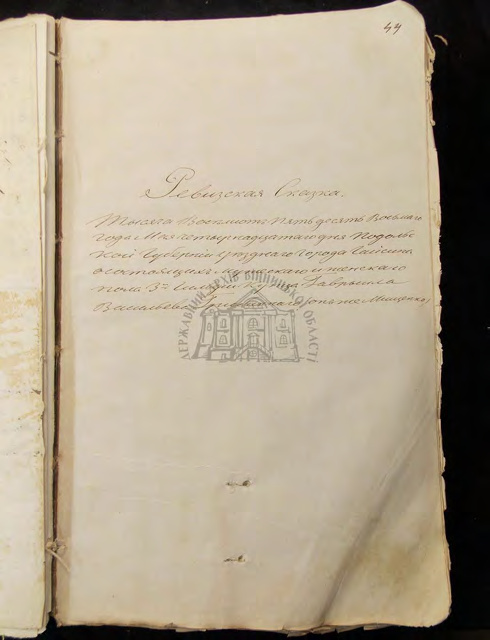 44
Ревизская Сказка.
Тысяча Восемьсот Пятьдесят Восьмаго
года Мая четырнадцатаго дня Подоль
ской Губернии уезднаго города Гайсина
о состоящих Мужескаго и женскаго
пола 3й Гильдии Купца Гаврыила
Васильева Мищенко
ДЕРЖАВНИЙ АРХІВ ВІННИЦЬКОЇ ОБЛАСТІ